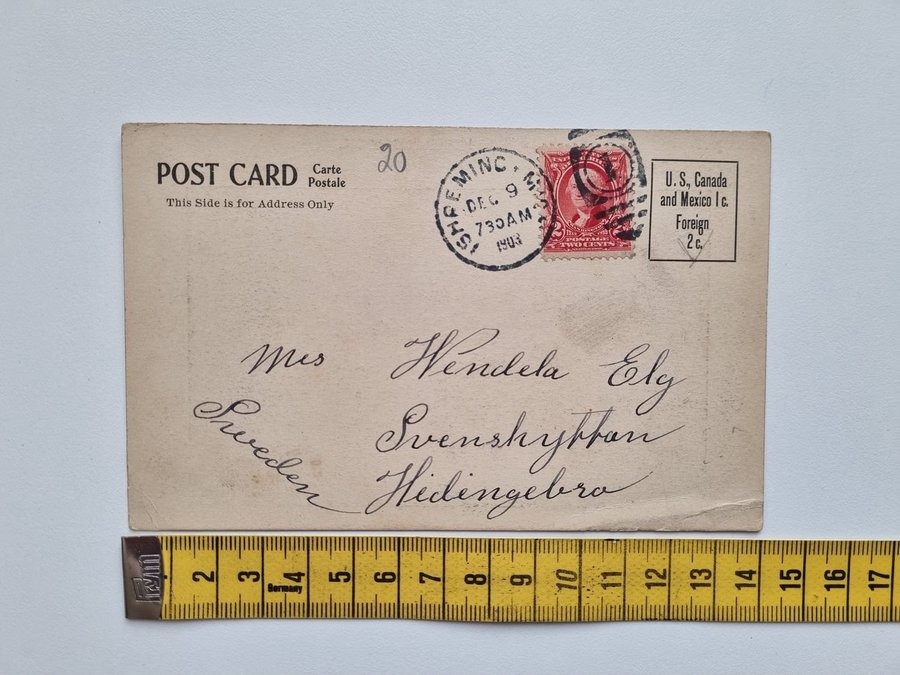 POST CARD
Carte Postale
This Side is for Address Only
20
ISHPEMING, MICH.
DEC 9
730AM
1903
POSTAGE
TWO CENTS
U. S., Canada
and Mexico 1c.
Foreign
2c.
Mrs Wendela Elg
Svenshyttan
Hidingebro
Sweden
2 3 4 5 6 7 8 9 10 11 12 13 14 15 16 17
Germany